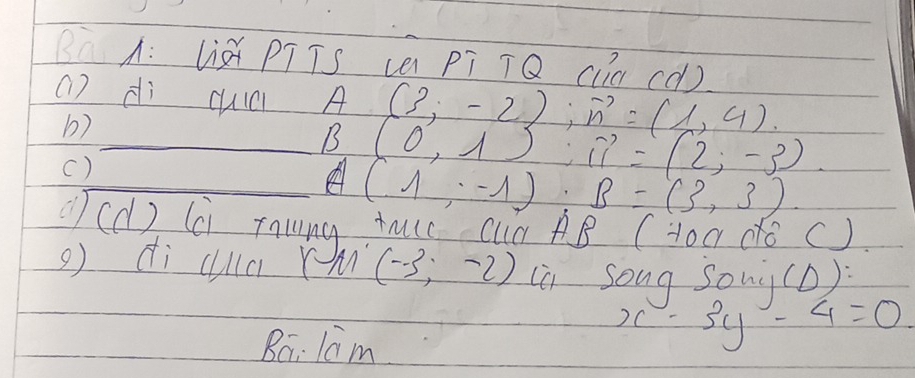 Bài 1: Viết PTTS và PTTQ của (d).
a) đi qua A (3; -2) ; n⃗ = (1, 4).
b) ________ B (0, 1) ; n⃗ = (2; -3).
c) ________ A (1 ; -1) . B = (3, 3).
d) (d) là trung trực của AB (toạ độ C).
e) đi qua M (-3; -2) và song song (D):
x - 3y - 4 = 0.
Bài làm